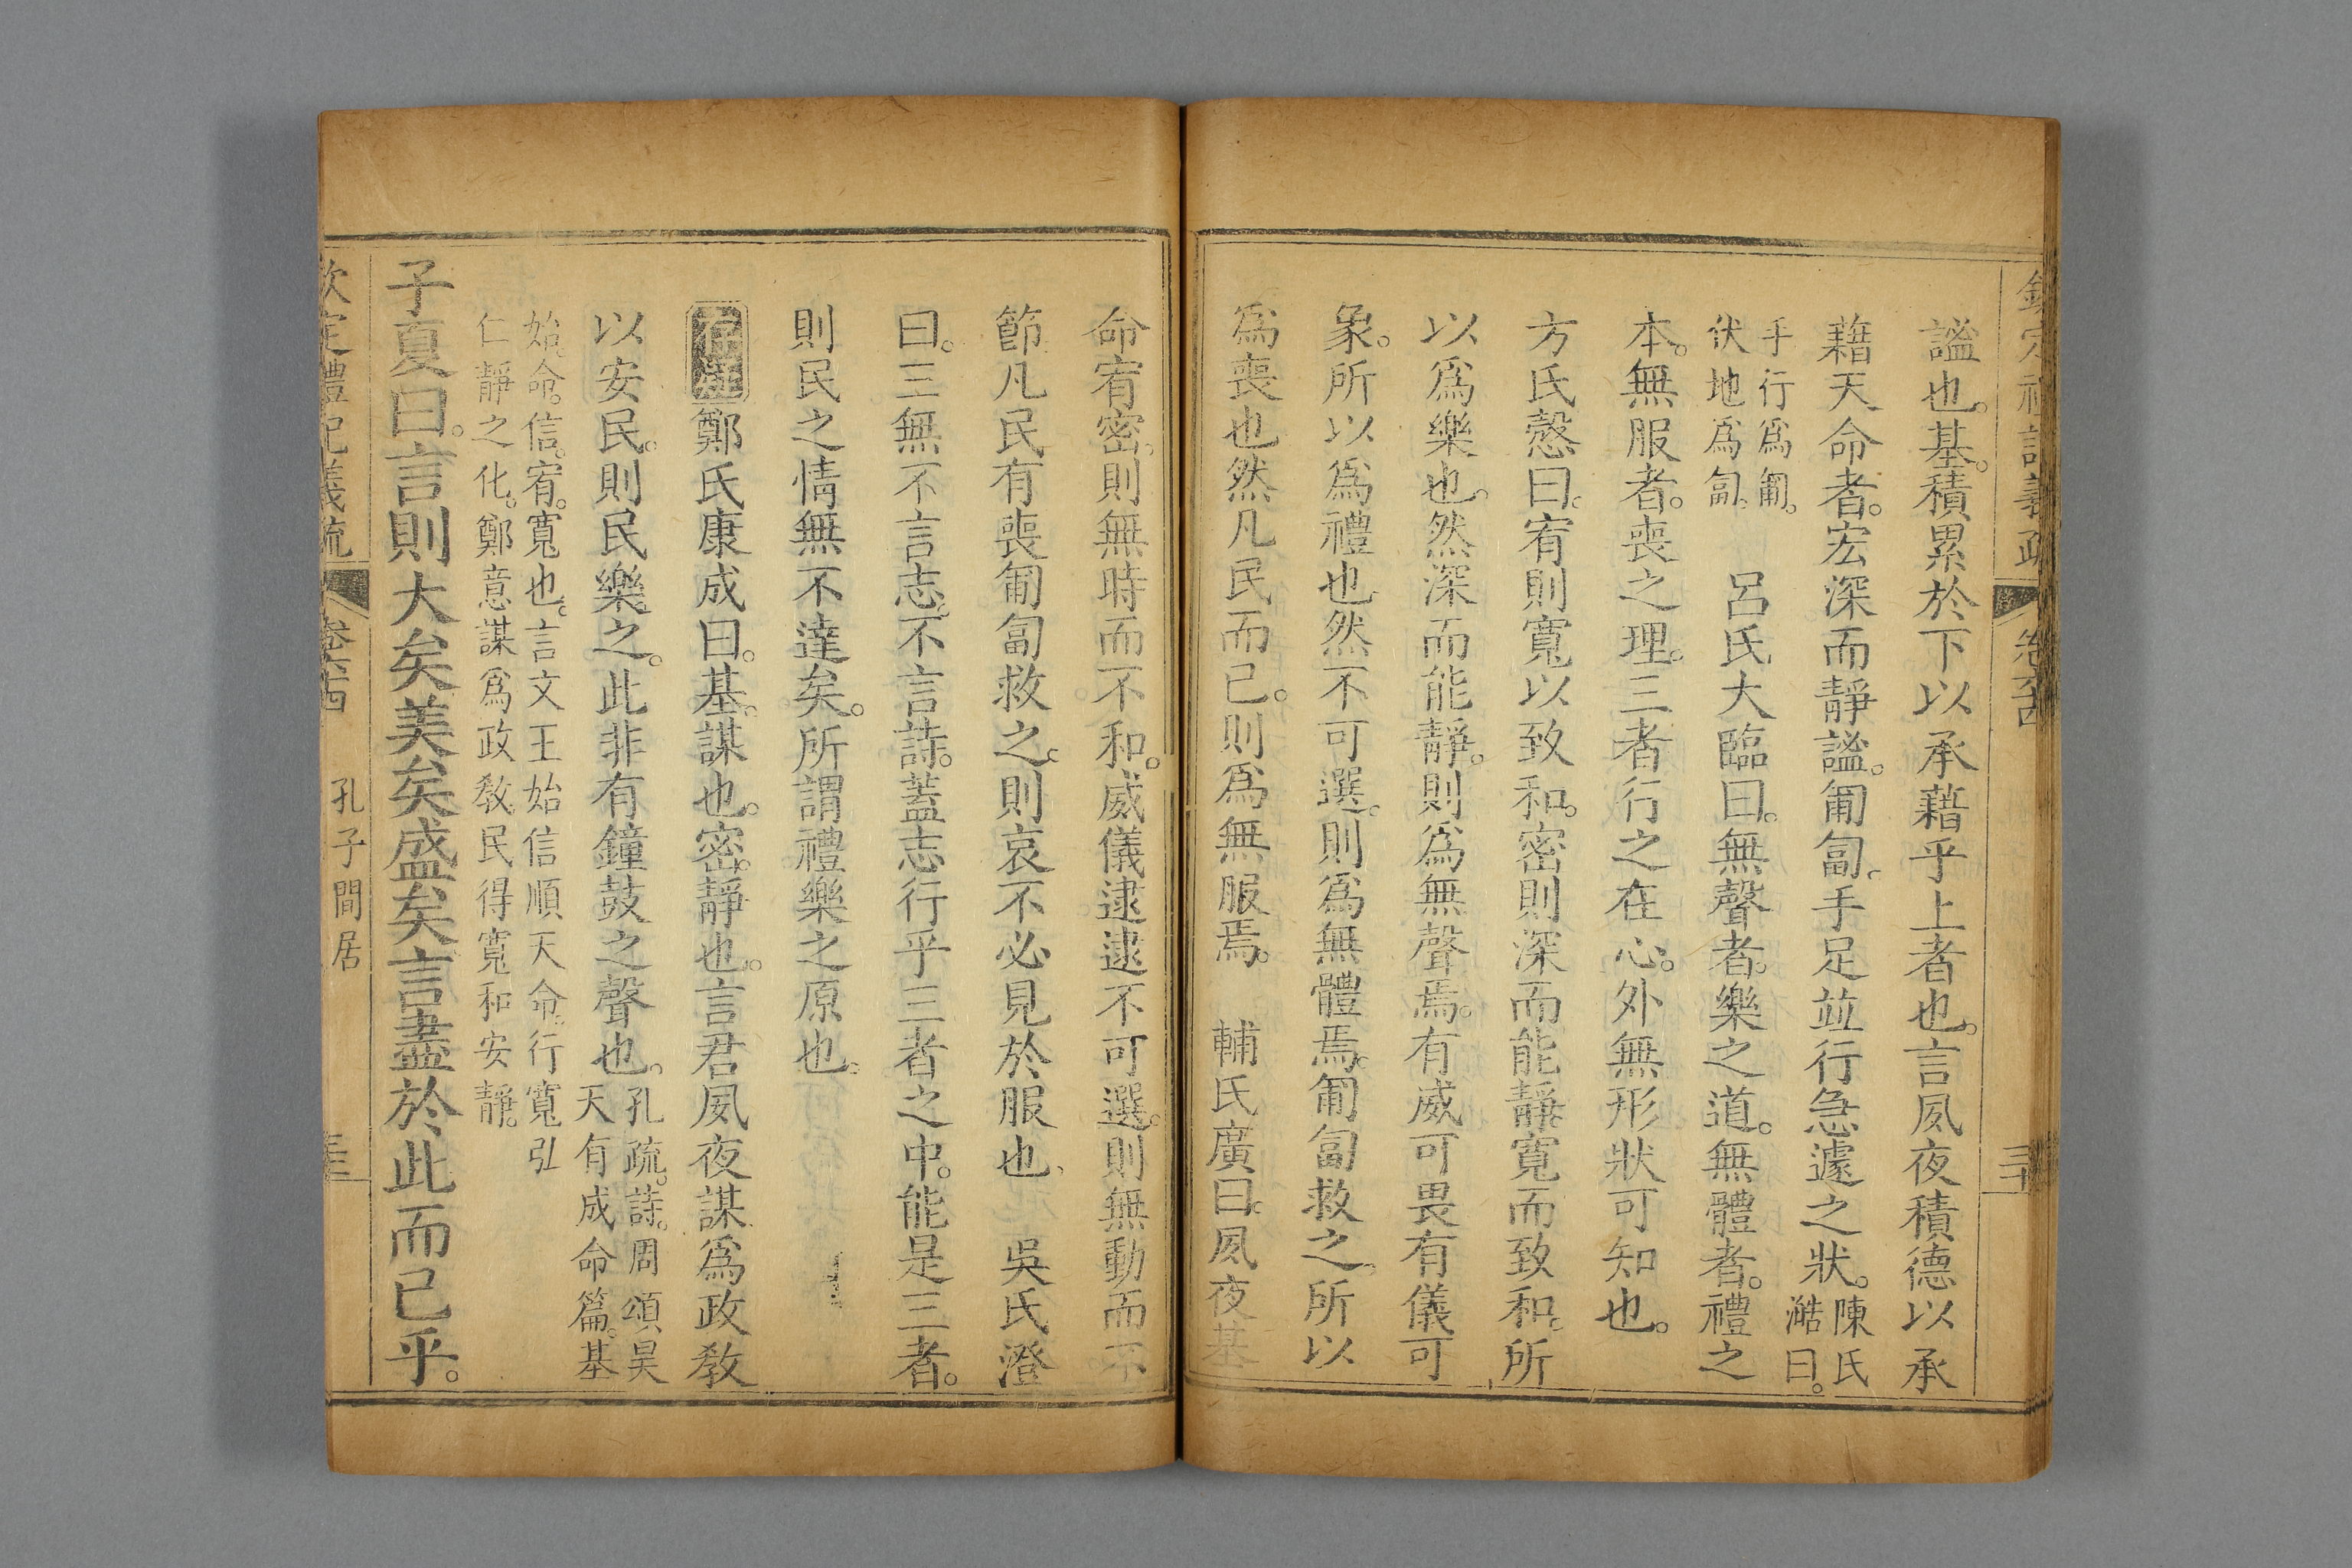 欽定禮記義疏 卷六十四 三十
謐也。基。積累於下以承藉乎上者也。言夙夜積德以承
藉天命者。宏深而靜謐。匍匐。手足並行急遽之狀。陳氏澔曰。
手行爲匍。伏地爲匐。 呂氏大臨曰。無聲者。樂之道。無體者。禮之
本。無服者。喪之理。三者行之在心。外無形狀可知也。
方氏慤曰。宥則寬以致和。密則深而能靜。寬而致和。所
以爲樂也。然深而能靜。則爲無聲焉。有威可畏有儀可
象。所以爲禮也。然不可選。則爲無體焉。匍匐救之。所以
爲喪也然凡民而已。則爲無服焉。 輔氏廣曰。夙夜基
命宥密。則無時而不和。威儀逮逮不可選。則無動而不
節凡民有喪匍匐救之。則哀不必見於服也。 吳氏澄
曰。三無不言志。不言詩。蓋志行乎三者之中。能是三者。
則民之情無不達矣。所謂禮樂之原也。
鄭氏康成曰。基。謀也。密。靜也。言君夙夜謀爲政教
以安民。則民樂之。此非有鐘鼓之聲也。孔疏。詩。周頌昊天有成命篇。基
始。命。信。宥。寬也。言文王始信順天命。行寬弘
仁靜之化。鄭意謀爲政教民得寬和安靜。
子夏曰。言則大矣美矣盛矣言盡於此而已乎。
欽定禮記義疏 卷六十四 孔子閒居